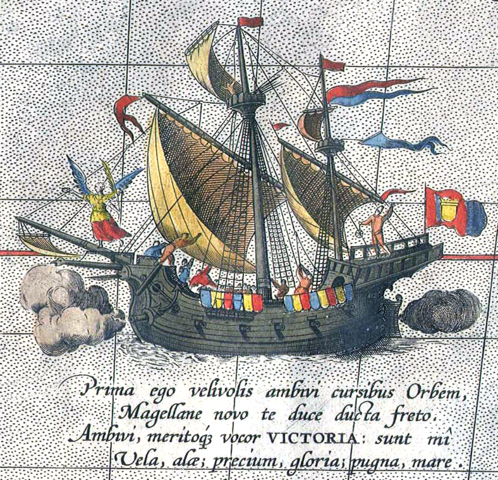 Prima ego velivolis ambivi cursibus Orbem,
Magellane novo te duce ducta freto.
Ambivi, meritoq́; vocor VICTORIA: sunt mî
Vela, alæ; precium, gloria; pugna, mare.